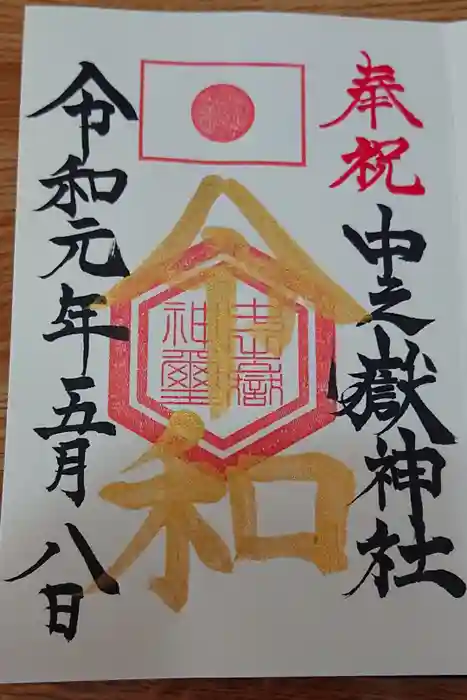 奉祝
中之嶽神社
令和
令和元年五月八日